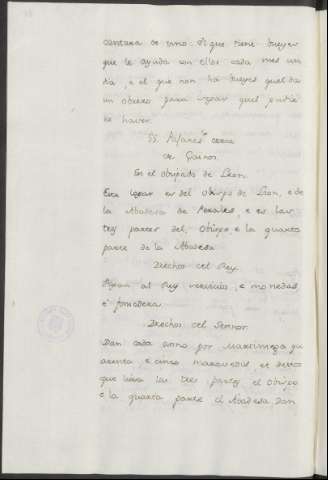 cantara de vino. El que tiene bueyes
que le ayuda con ellos cada mes un
dia, e el que non ha bueyes quel da
un obrero para lograr quel pudie
re haver.
SS. Alfanes cerca
de
En el obispado de Leon.
Este logar es del Obispo de Leon, e de
la Abadesa de Perales, e es las
trey partes del Obispo e la quarta
parte de la Abadesa.
Derechos del Rey.
Pagan al Rey servicios, e monedas,
e fonsadera.
Derechos del Sennor.
Dan cada anno por Martiniega qu
arenta, e cinco maravedis, et destos
que lieva las tres partes el Obispo
e la quarta parte el Abadesa. Dan